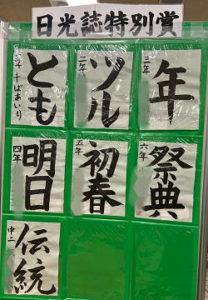 日光誌特別賞
とも
二年
ツル
三年
年
四年
明日
五年
初春
六年
祭典
中二
伝統